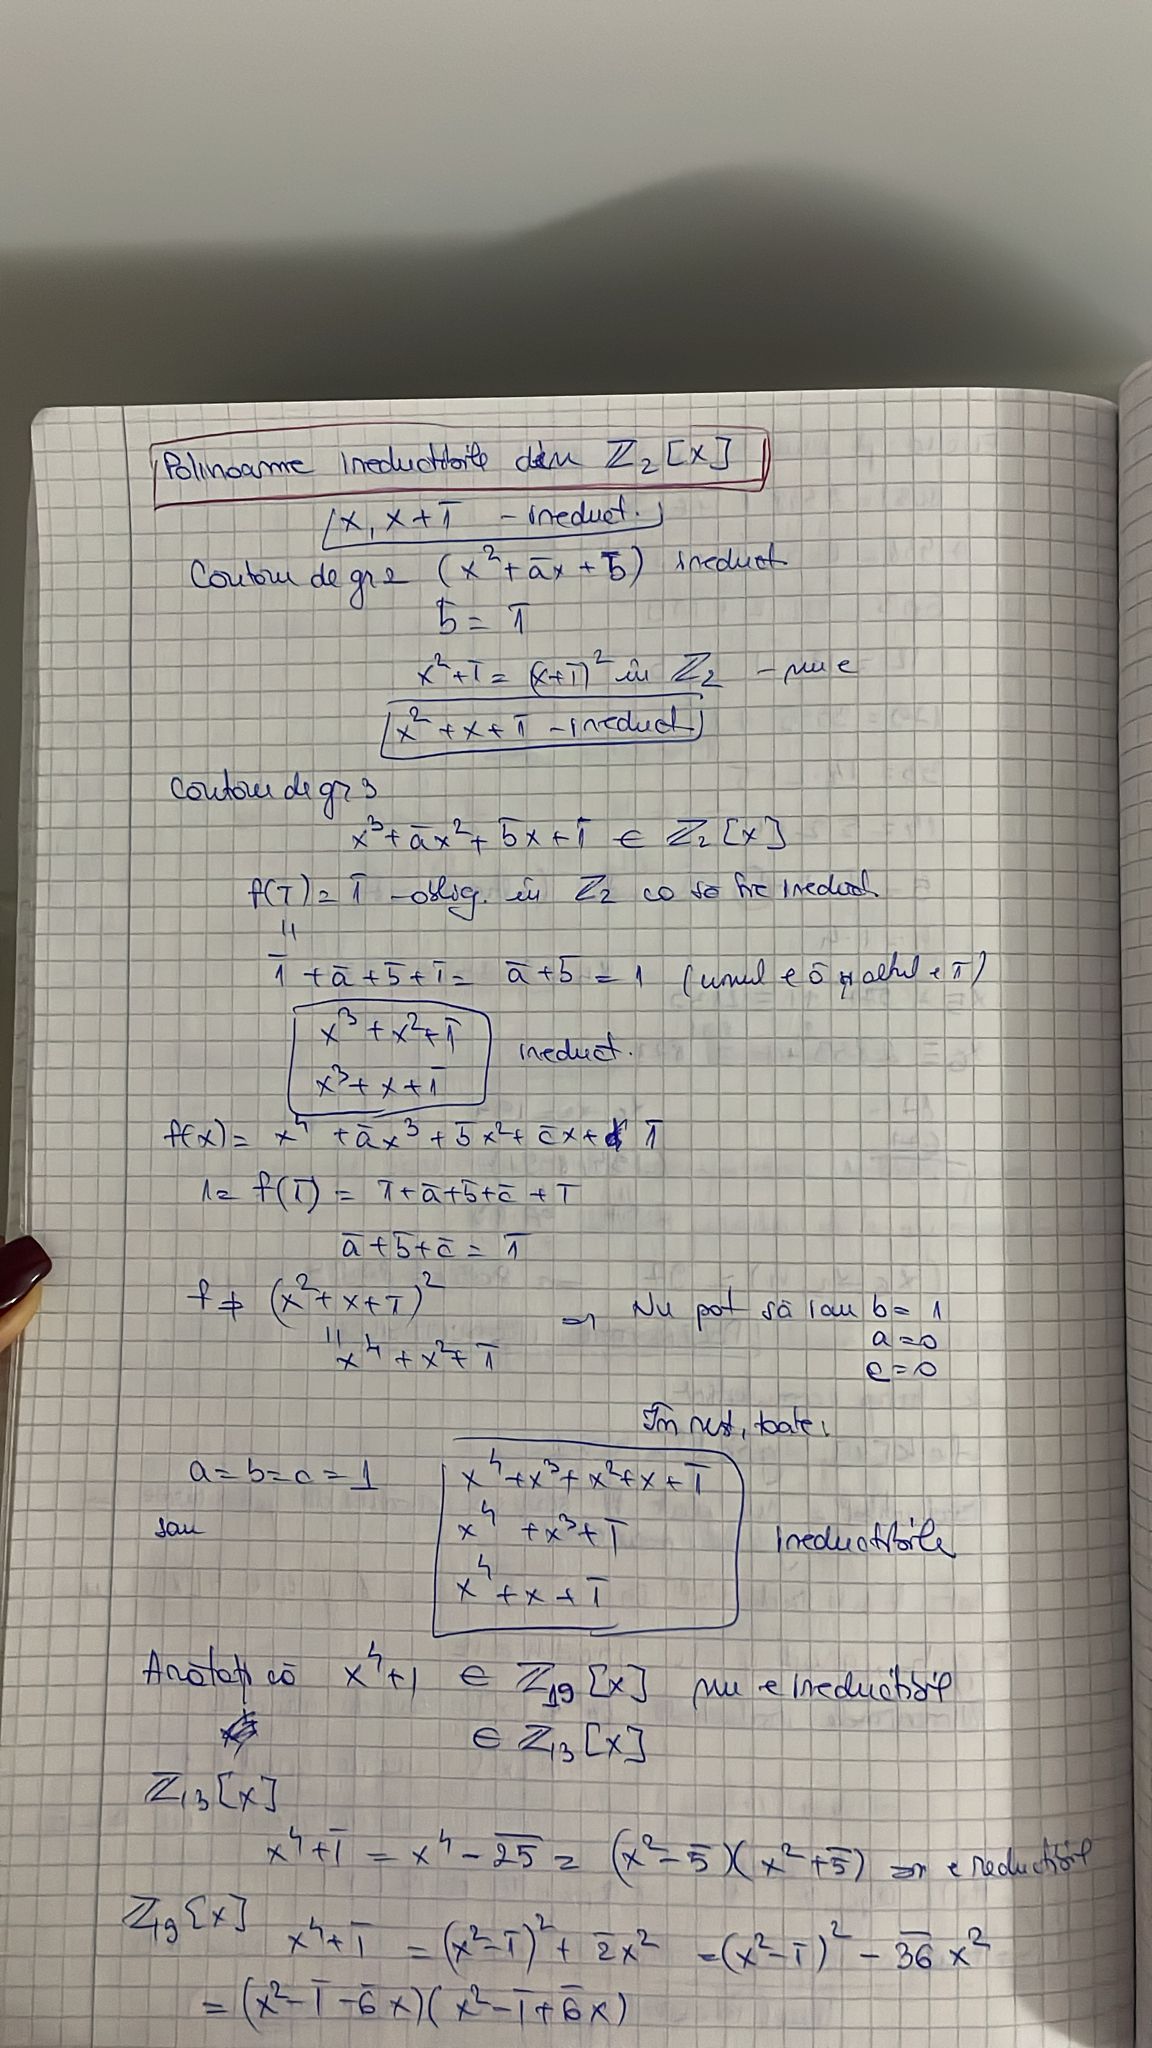 Polinoame ireductibile din ℤ₂[x]
x, x+1̄ - ireduct.
Căutăm de gr 2 (x² + āx + b̄) ireduct
b̄ = 1̄
x²+1̄ = (x+1̄)² în ℤ₂ - nu e
x² + x + 1̄ - ireduct
Căutăm de gr 3
x³ + āx² + b̄x + 1̄ ∈ ℤ₂[x]
f(1̄) = 1̄ - oblig. în ℤ₂ ca să fie ireduct.
"
1̄ + ā + b̄ + 1̄ = ā + b̄ = 1 (unul e 0̄ și altul e 1̄)
x³ + x² + 1̄
ireduct.
x³ + x + 1̄
f(x) = x⁴ + āx³ + b̄x² + c̄x + 1̄
1 = f(1̄) = 1̄ + ā + b̄ + c̄ + 1̄
ā + b̄ + c̄ = 1̄
f ≠ (x² + x + 1̄)² ⇒ Nu pot să iau b = 1
a = 0
" x⁴ + x² + 1̄
c = 0
În rest, toate:
a = b = c = 1 x⁴ + x³ + x² + x + 1̄
sau x⁴ + x³ + 1̄ ireductibile
x⁴ + x + 1̄
Arătați că x⁴+1 ∈ ℤ₁₉[x] nu e ireductibil
∈ ℤ₁₃[x]
ℤ₁₃[x]
x⁴ + 1̄ = x⁴ - 2̄5̄ = (x² - 5̄)(x² + 5̄) ⇒ e reductibil
ℤ₁₉[x] x⁴ + 1̄ = (x² - 1̄)² + 2̄x² = (x² - 1̄)² - 3̄6̄x²
= (x² - 1̄ - 6̄x)(x² - 1̄ + 6̄x)